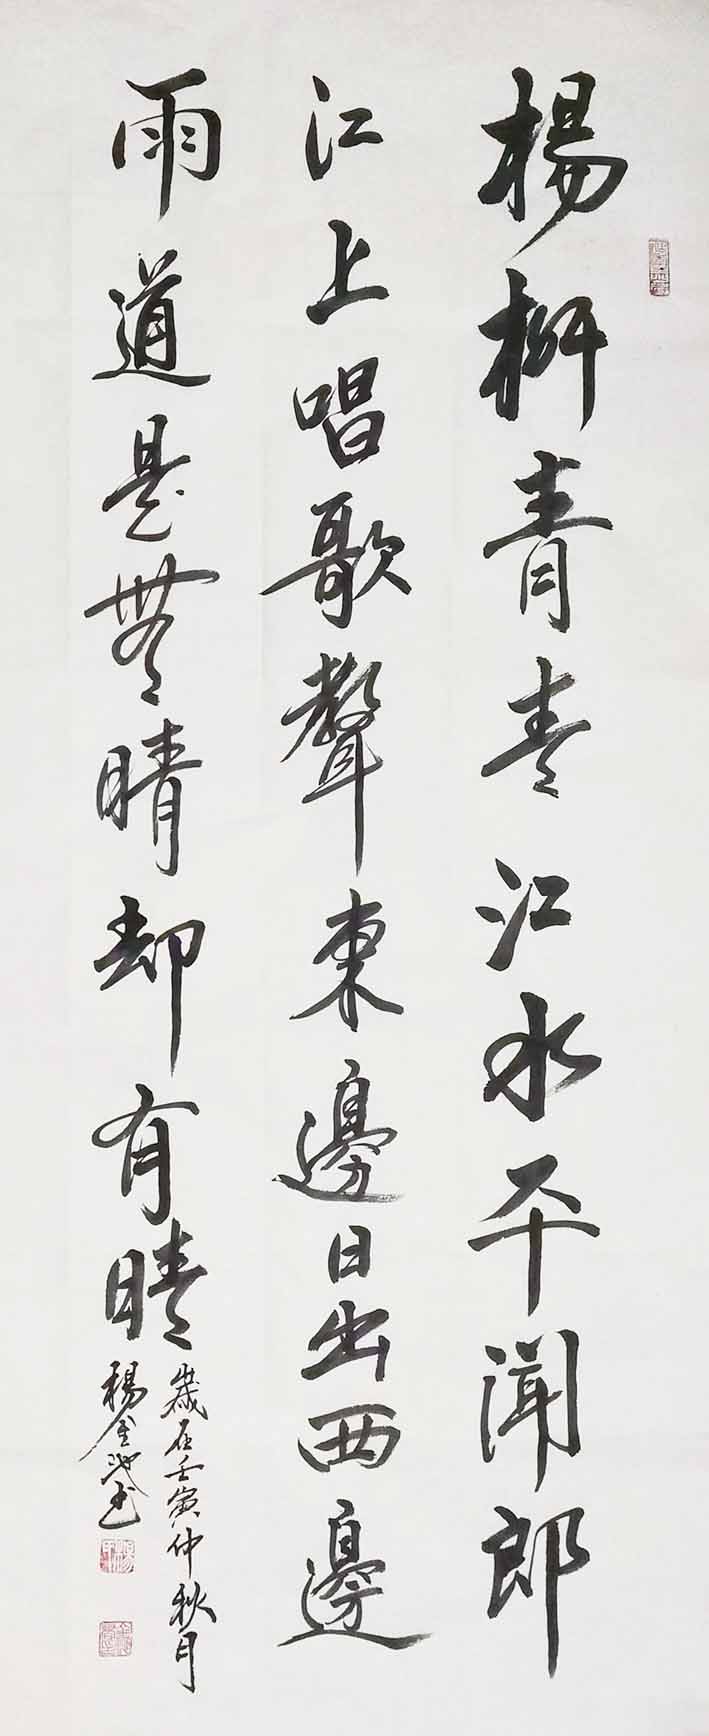 楊柳青青江水平聞郎
江上唱歌聲東邊日出西邊
雨道是無晴却有晴
歲在壬寅仲秋月
楊金武書